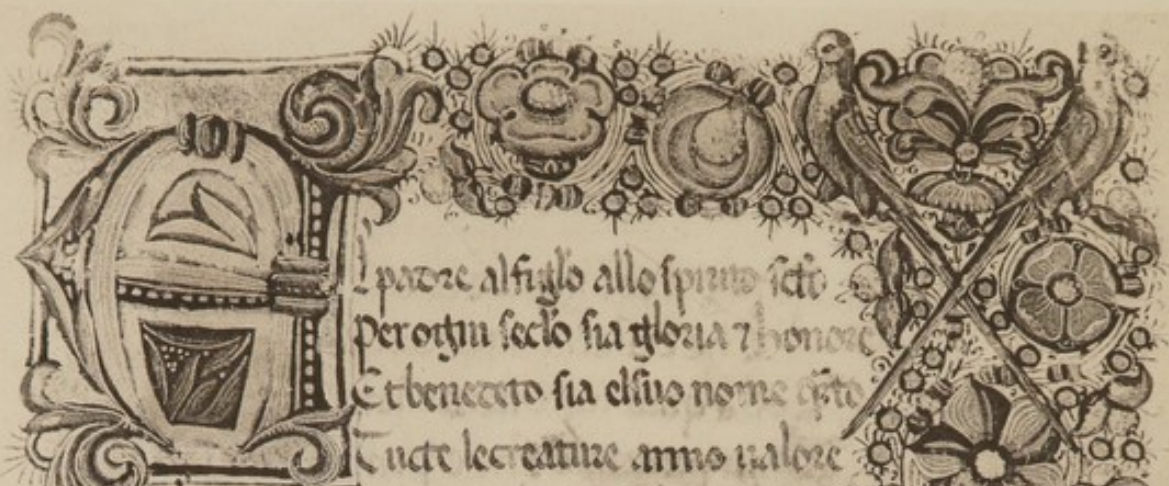 Al patre al figlo allo spirito scto
Per ogni seclo sia gloria ⁊ honore
Et benedeto sia el suo nome
Tucte le creature anno ualore